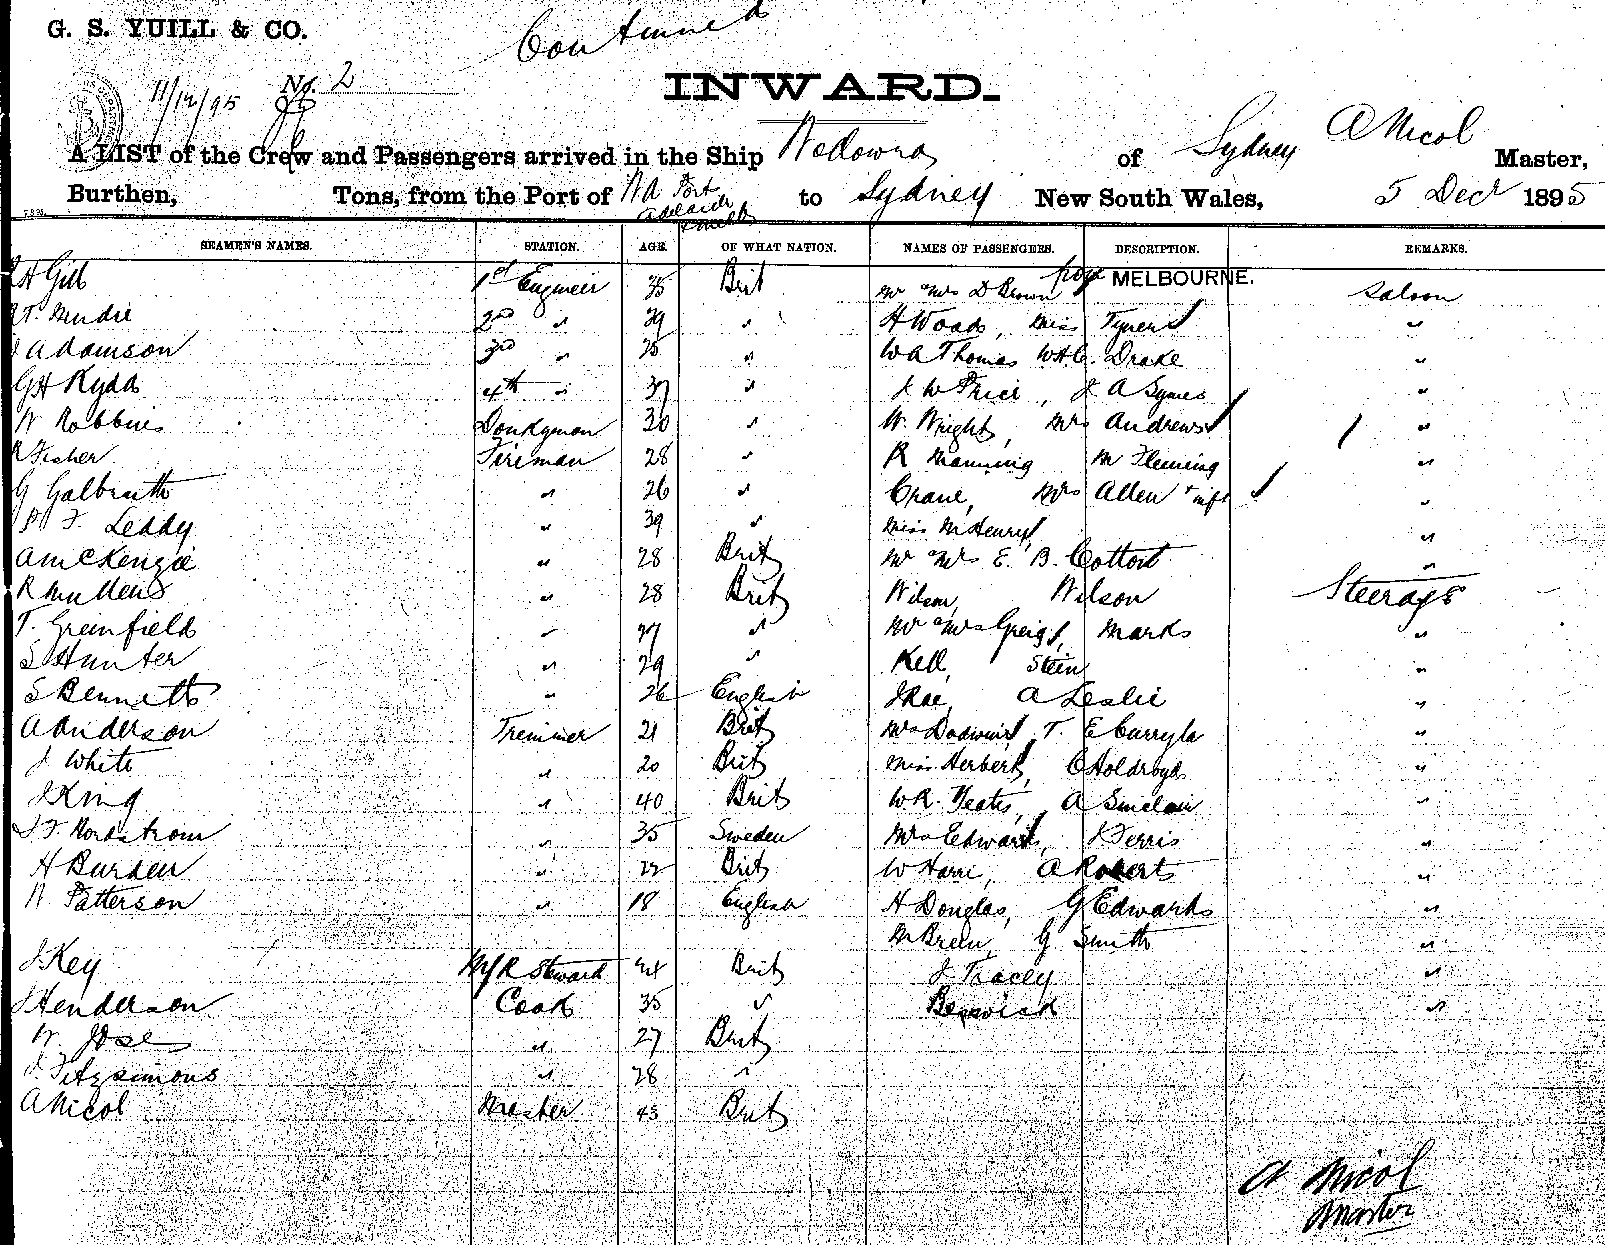 G. S. YUILL & CO.
Continued
11/12/95 No. 2
INWARD.
A LIST of the Crew and Passengers arrived in the Ship Wodonga of Sydney A Nicol Master,
Burthen, Tons, from the Port of WA Port Adelaide to Sydney New South Wales, 5 Decr 1895
SEAMEN'S NAMES. STATION. AGE. OF WHAT NATION. NAMES OF PASSENGERS. DESCRIPTION. REMARKS.
H Gill 1st Engineer 35 Brit Mr & Mrs D Brown from MELBOURNE. Saloon
2nd " 29 " H Woods, Miss Tyner "
J Adamson 3rd " 25 " W A Thomas W H C. Drake "
G H Kydd 4th " 37 " J W Price, J A Symes "
W Robbins Donkeyman 30 " W. Wright, Mrs Andrews "
R Fisher Fireman 28 " R Manning M Fleming "
G Galbraith " 26 " Crane, Mrs Allen & inft "
F Leddy " 39 " Miss McHenry "
A McKenzie " 28 Brit Mr & Mrs E. B. Cottort "
R Mullens " 28 Brit Wilson, Wilson Steerage
T. Greenfield " 27 " Mr & Mrs Greig, Marks "
S Hunter " 29 " Kell, Stein "
S Bennetts " 26 English J Rae, A Leslie "
A Anderson Trimmer 21 Brit Mrs T. E "
J White " 20 Brit Miss Herbert, C Holdroyd "
J King " 40 Brit W R. Yeates, A Sinclair "
J F Nordstrom " 35 Sweden Mrs Edwards, J Ferris "
H Burden " 22 Brit W Harri, A Roberts "
W Patterson " 18 English H Douglas, G Edwards "
M Breen, G Smith "
J Key Steward Brit J Tracey "
J Henderson Cook 35 " Berwick "
W. Jose " 27 Brit
J Fitzsimons " 28 "
A Nicol Master 43 Brit
A Nicol
Master